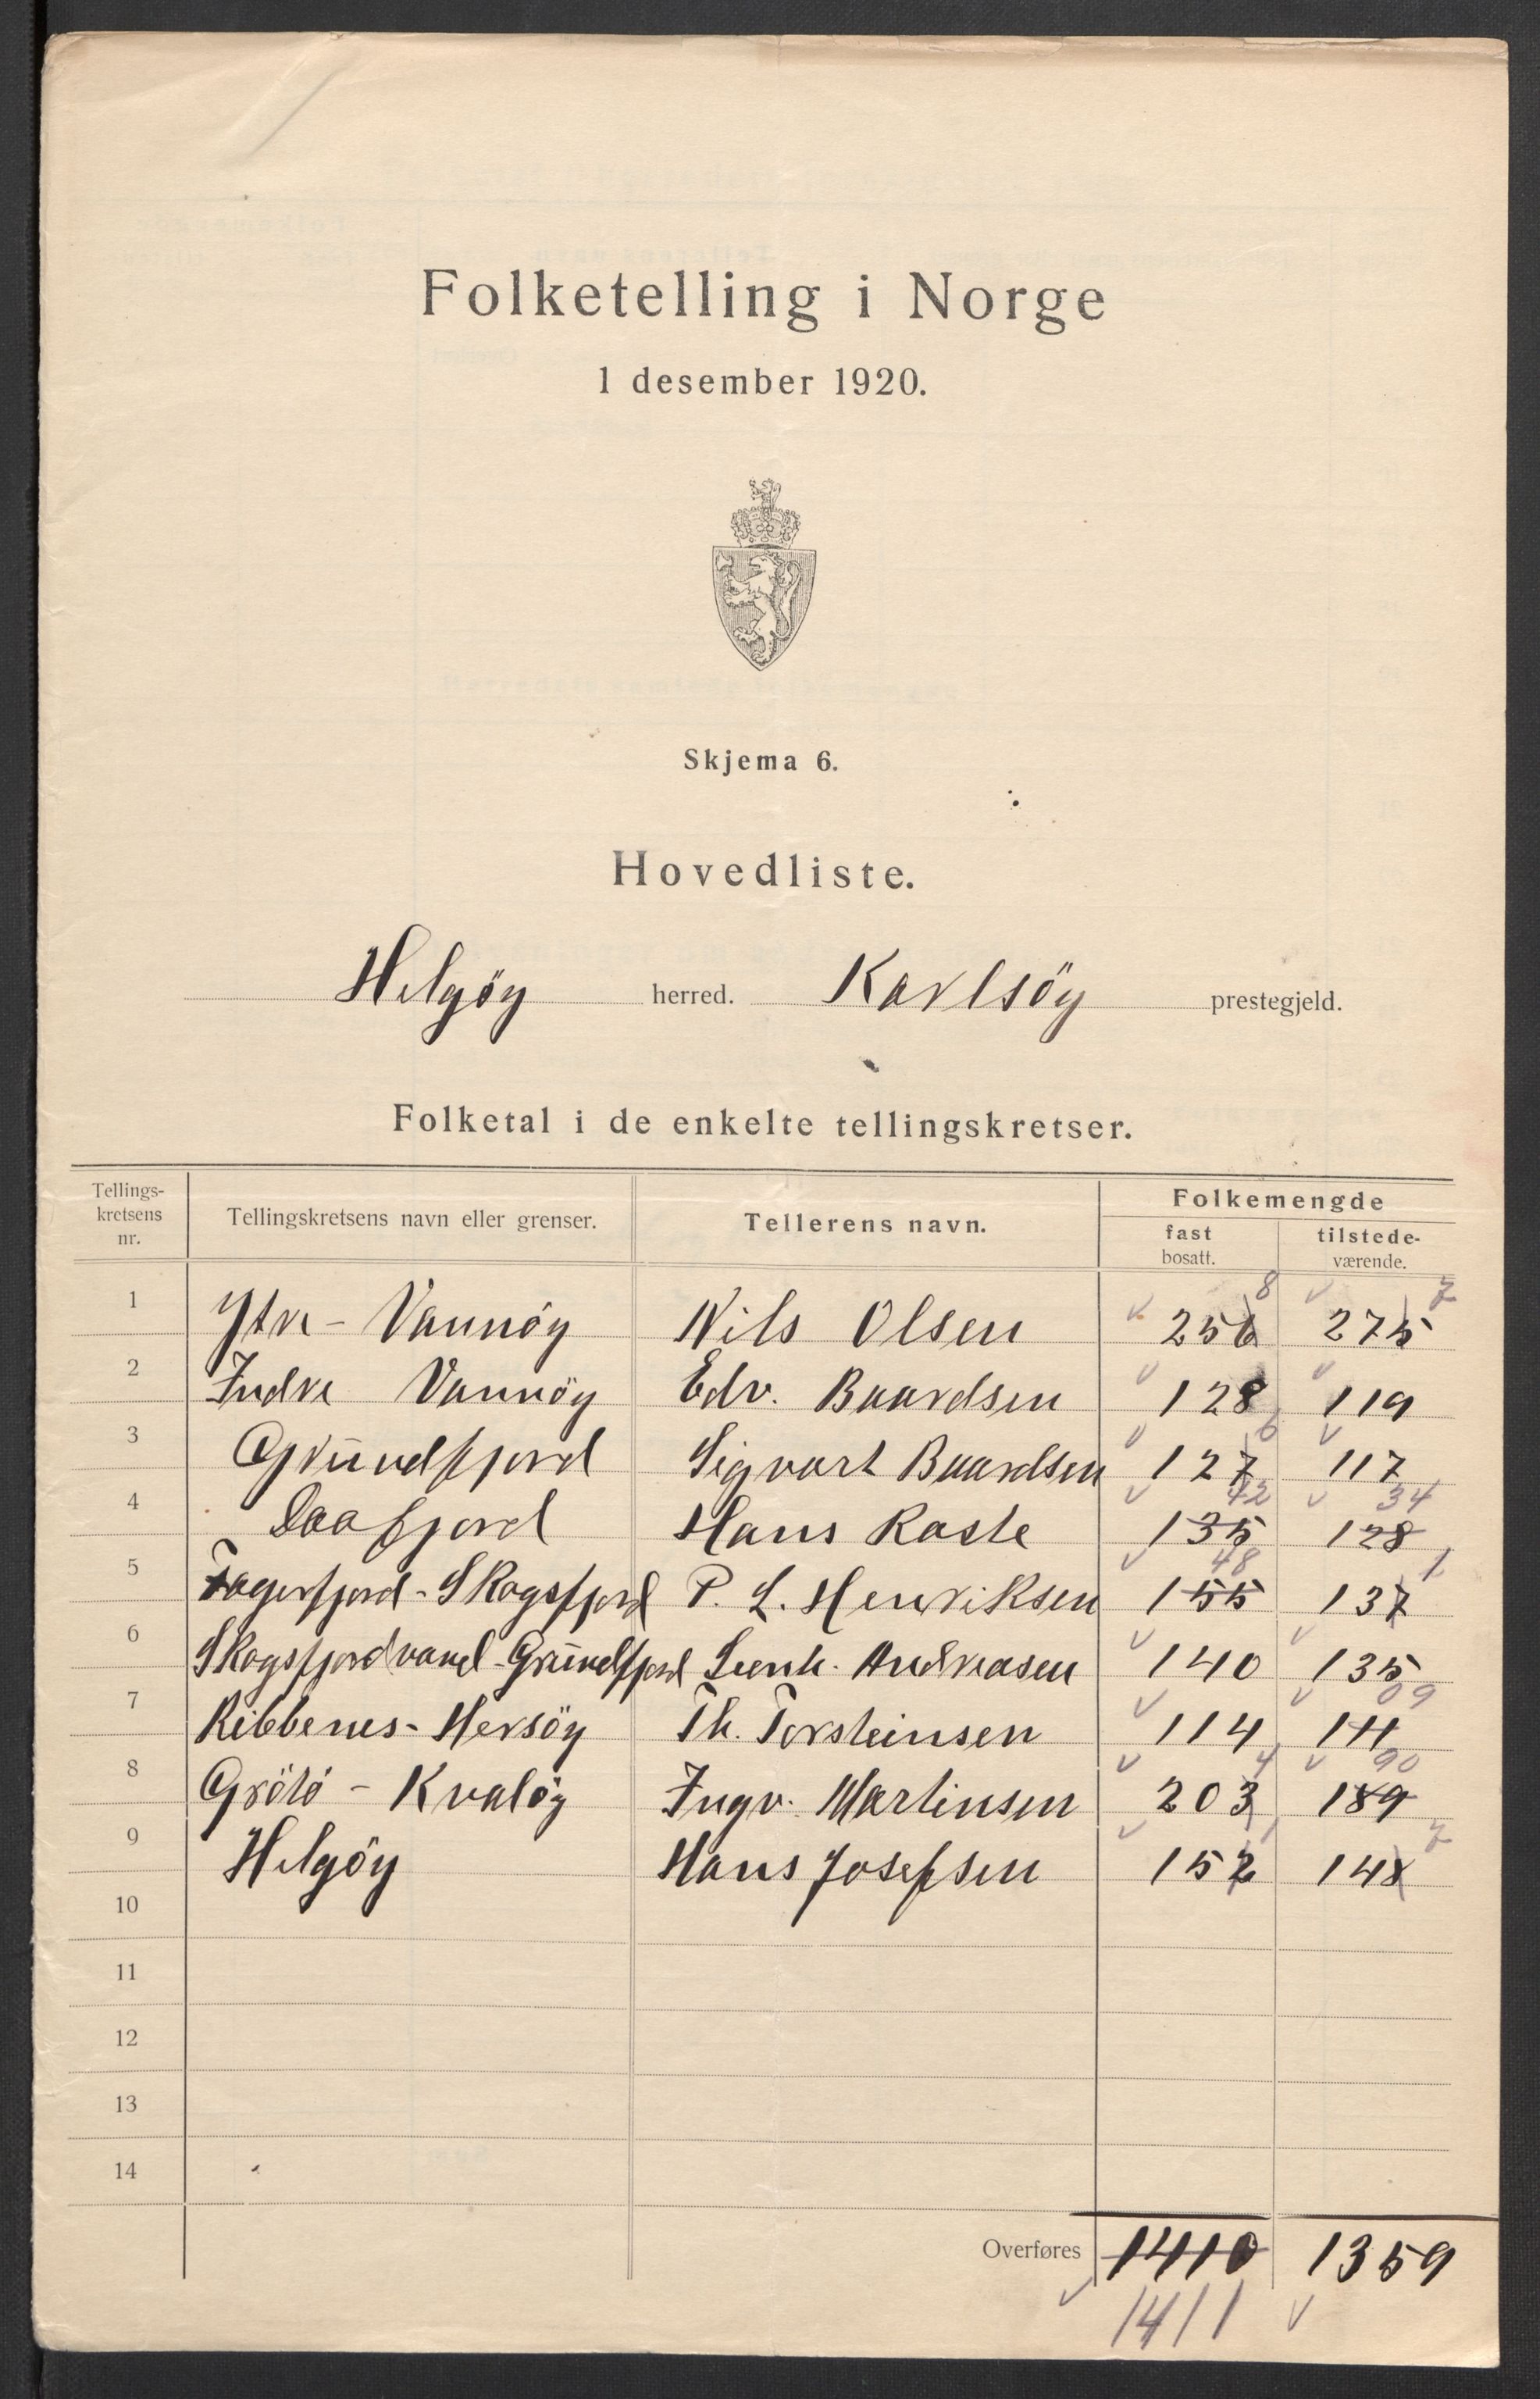 Folketelling i Norge
1 desember 1920.
Skjema 6.
Hovedliste.
Helgöy herred. Karlsöy prestegjeld.
Folketal i de enkelte tellingskretser.
Tellings-
kretsens
nr.
Tellingskretsens navn eller grenser.
Tellerens navn.
Folkemengde
fast
bosatt.
tilstede-
værende.
8 7
1 Ytre - Vannöy Nils Olsen 256 275
2 Indre Vannöy Edv. Baardsen 128 119
6
3 Grundfjord Sigvart Baardsen 127 117
42 34
4 Daafjord Hans Raste 135 128
48 1
5 Fagerfjord - Skogsfjord P. L. Henriksen 155 137
6 Skogsfjordvand - Grundfjord Lenh. Andreasen 140 135
09
7 Ribbenes - Hersöy Th. Torsteinsen 114 111
4 90
8 Grötö - Kvalöy Ingv. Martinsen 203 189
1 7
9 Helgöy Hans Josefsen 152 148
10
11
12
13
14
Overføres 1410 1359
1411